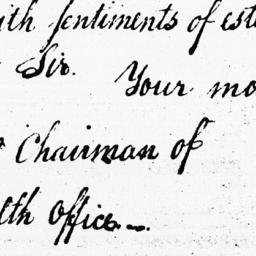 ith sentiments of este
Sir.
Your mo
Chairman of
lth Office.